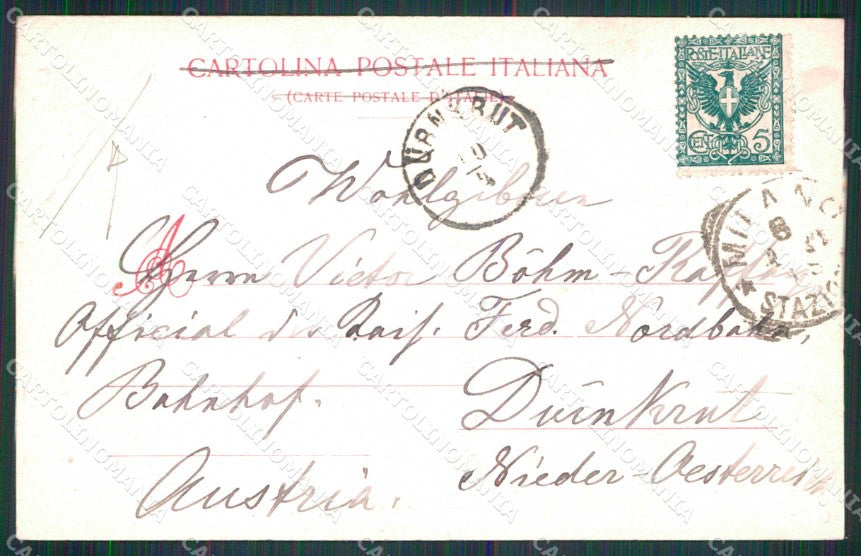 CARTOLINA POSTALE ITALIANA
(CARTE POSTALE D'ITALIE)
POSTE·ITALIANE
CENT. 5
DÜRNKRUT
10
MILANO
8
STAZIO
Wohlgeboren
Herrn Victor Böhm-
Official der Kais. Ferd. Nordbahn,
Bahnhof. Dürnkrut
Nieder-Oesterreich
Austria.
CARTOLINOMANIA